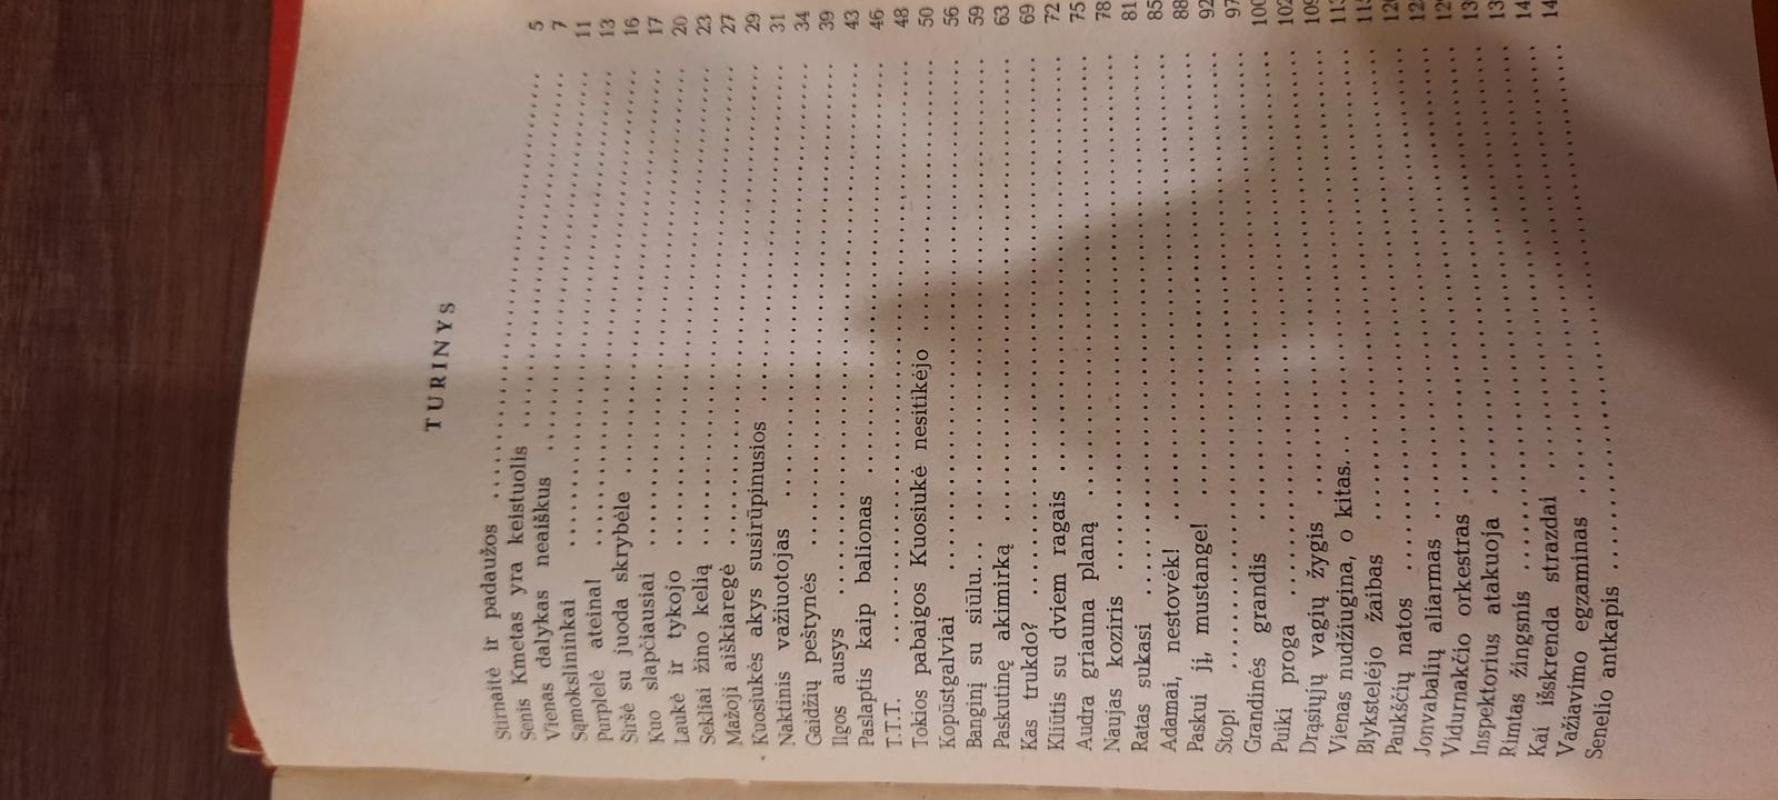 TURINYS
Stirnaitė ir padaužos ..... 5
Senis Kmetas yra keistuolis ..... 7
Vienas dalykas neaiškus ..... 11
Sąmokslininkai ..... 13
Purplelė ateina! ..... 16
Širšė su juoda skrybėle ..... 17
Kuo slapčiausiai ..... 20
Laukė ir tykojo ..... 23
Sekliai žino kelią ..... 27
Mažoji aiškiaregė ..... 29
Kuosiukės akys susirūpinusios ..... 31
Naktinis važiuotojas ..... 34
Gaidžių peštynės ..... 39
Ilgos ausys ..... 43
Paslaptis kaip balionas ..... 46
T.T.T. ..... 48
Tokios pabaigos Kuosiukė nesitikėjo ..... 50
Kopūstgalviai ..... 56
Banginį su siūlu... ..... 59
Paskutinę akimirką ..... 63
Kas trukdo? ..... 69
Kliūtis su dviem ragais ..... 72
Audra griauna planą ..... 75
Naujas koziris ..... 78
Ratas sukasi ..... 81
Adamai, nestovėk! ..... 85
Paskui jį, mustange! ..... 88
Stop! ..... 92
Grandinės grandis ..... 97
Puiki proga ..... 100
Drąsiųjų vagių žygis ..... 102
Vienas nudžiugina, o kitas... ..... 109
Blykstelėjo žaibas .....
Paukščių natos .....
Jonvabalių aliarmas .....
Vidurnakčio orkestras .....
Inspektorius atakuoja .....
Rimtas žingsnis .....
Kai išskrenda strazdai .....
Važiavimo egzaminas .....
Senelio antkapis .....